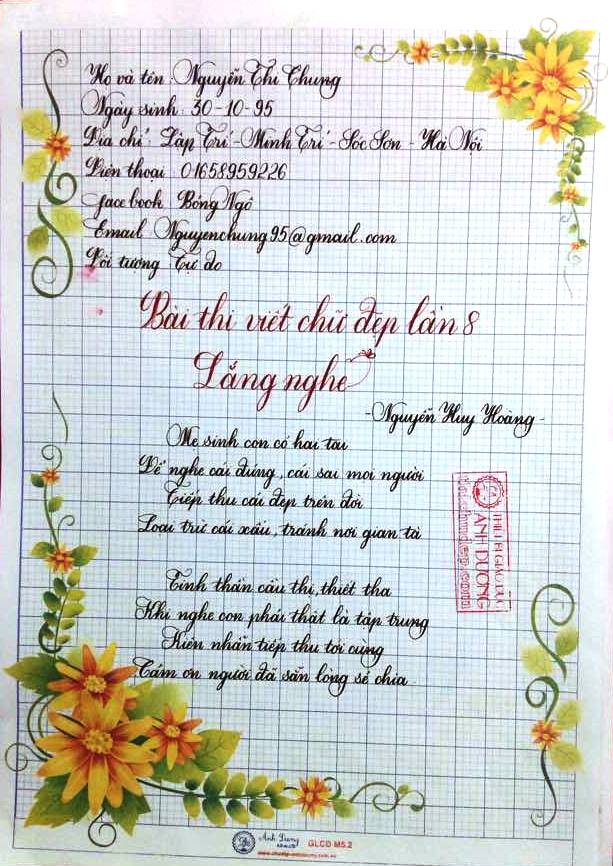 Họ và tên : Nguyễn Thị Chung
Ngày sinh : 30-10-95
Địa chỉ : Lập Trí - Minh Trí - Sóc Sơn - Hà Nội
Điện thoại 01658959226
face book Bống Ngô
Email Nguyenchung95@gmail.com
Đối tượng Tự do
Bài thi viết chữ đẹp lần 8
Lắng nghe
- Nguyễn Huy Hoàng -
Mẹ sinh con có hai tai
Để nghe cái đúng, cái sai mọi người
Tiếp thu cái đẹp trên đời
Loại trừ cái xấu, tránh nơi gian tà
Tinh thần cầu thị, thiết tha
Khi nghe con phải thật là tập trung
Kiên nhẫn tiếp thu tới cùng
Cám ơn người đã sẵn lòng sẻ chia
ÁNH DƯƠNG
Ánh Dương
GLCD M5.2